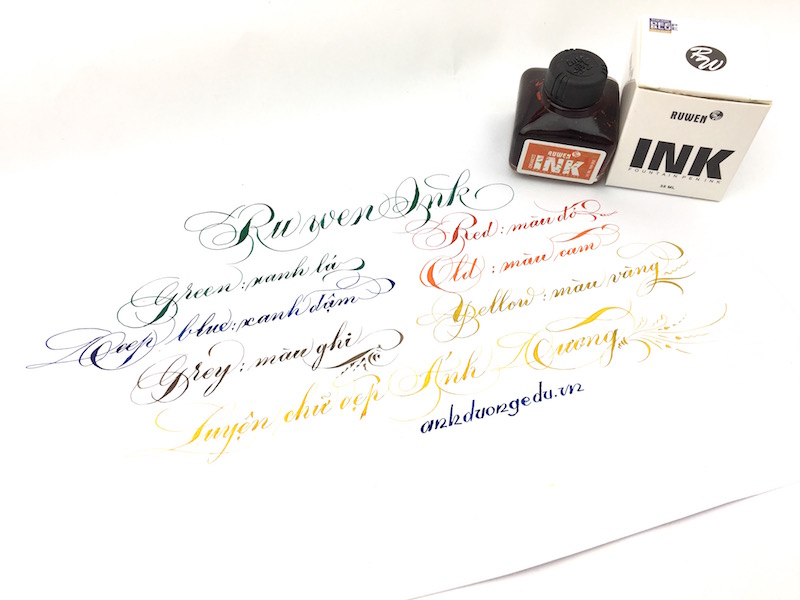 RW
RUWEN
INK
FOUNTAIN PEN INK
RUWEN
INK
Ruwen Ink
Green : xanh lá
Deep blue : xanh đậm
Grey : màu ghi
Red : màu đỏ
Old : màu cam
Yellow : màu vàng
Luyện chữ đẹp Ánh Dương
anhduongedu.vn